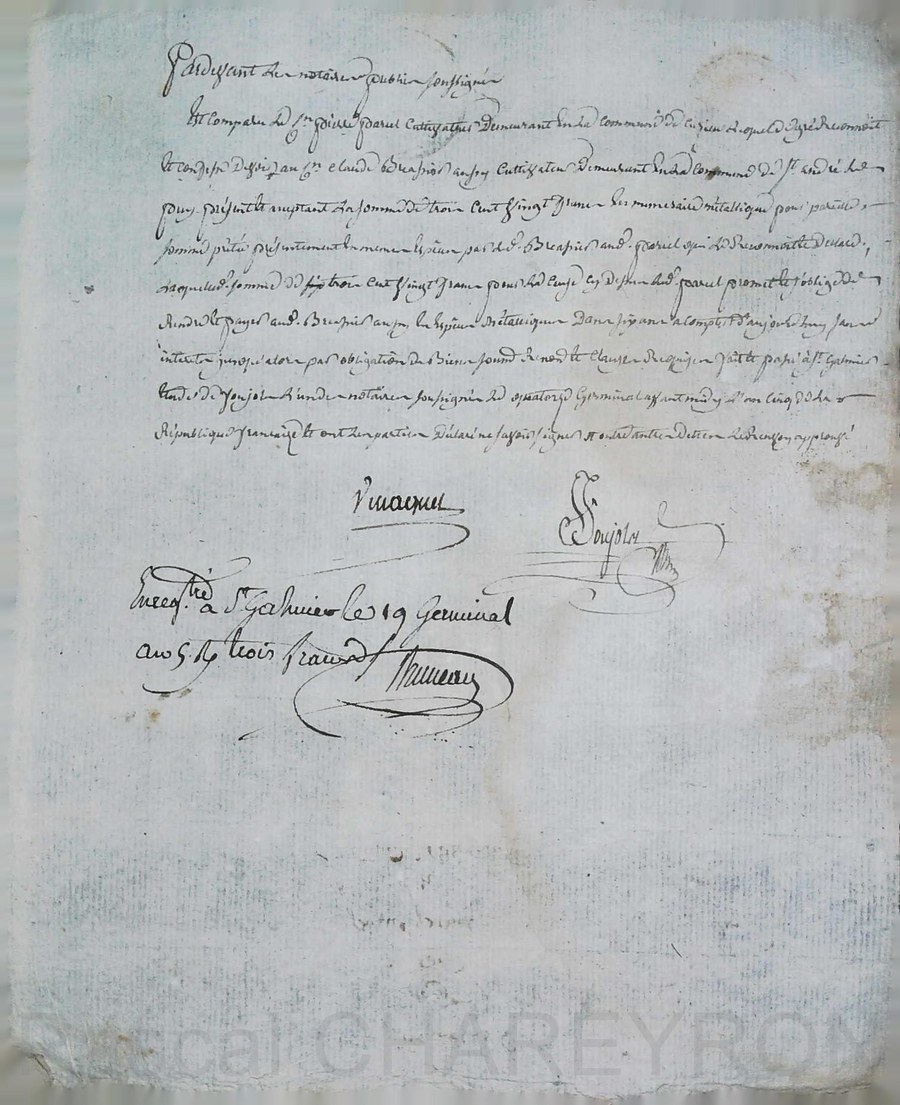 Pardevant les notaires publics soussignés
Est comparu le Sr pierre parcel Cultivateur Demeurant en la Commune de Cuzieu lequel de gré Reconnoit
Et confesse Devoir au Sr claude Breassier Cultivateur Demeurant en la Commune de St andré le
puy présent et aceptant la somme de trois Cent Vingt francs en numeraire métallique pour pareille
somme prêté présentement en meme Espèces par led. Breassier aud. parcel qui le Reconnoit et Déclare,
Laquelle d. somme de trois Cent Vingt francs pour la Cause Cy Dessus led. parcel promet et s'oblige de
Rendre et payer aud. Breassier en Espèces Métalliques Dans six ans a Compter d'aujourd'huy sans
interets jusqu'alors par obligation de Biens soumis Renon. et Clauses Requises fait et passé à St. Galmier
Etude de Poujol l'un des notaires soussignés le quatorze Germinal avant midy l'an cinq de la
République française et ont les parties Déclaré ne savoir signer
Poujol
Enregtré à St Galmier le 19 Germinal
an 5. R. trois francs
Pascal CHAREYRON